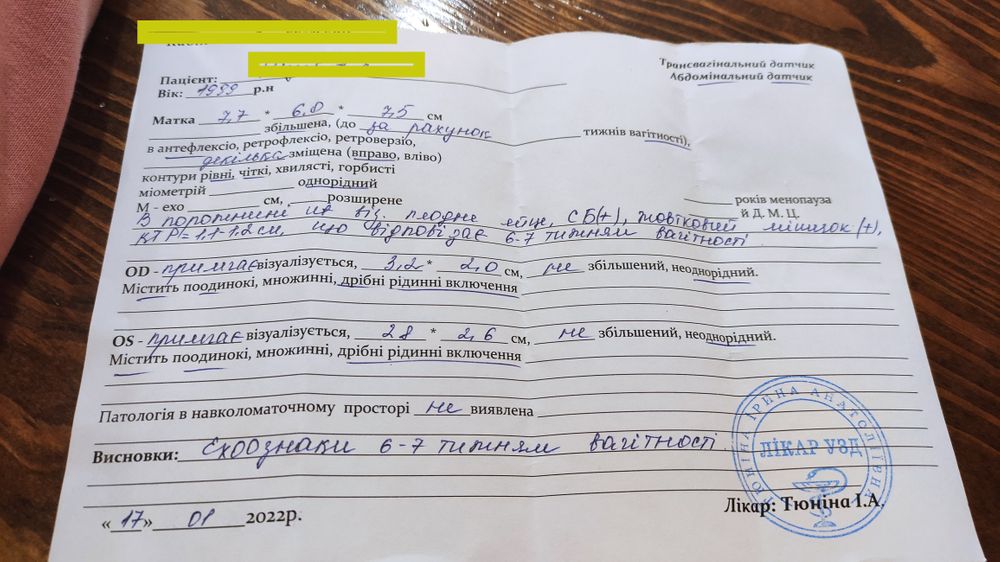 Трансвагінальний датчик
Абдомінальний датчик
Пацієнт:
Вік: 1999 р.н
Матка 7,7 * 6,8 * 7,5 см
збільшена, (до за рахунок тижнів вагітності),
в антефлексіо, ретрофлексіо, ретроверзіо,
декілька зміщена (вправо, вліво)
контури рівні, чіткі, хвилясті, горбисті
міометрій однорідний
М - ехо см, розширене
років менопауза
й Д. М. Ц.
В порожнині м віз. плодне яйце, СБ(+), жовтковий мішок (+),
КТР = 1,1-1,2 см, що відповідає 6-7 тижням вагітності
OD - прилягає візуалізується, 3,2 * 2,0 см, не збільшений, неоднорідний.
Містить поодинокі, множинні, дрібні рідинні включення
OS - прилягає візуалізується, 2,8 * 2,6 см, не збільшений, неоднорідний.
Містить поодинокі, множинні, дрібні рідинні включення
Патологія в навколоматочному просторі не виявлена
Висновки: Ехоознаки 6-7 тижням вагітності
ТЮНІНА ІРИНА АНАТОЛІЇВНА
ЛІКАР УЗД
Лікар: Тюніна І.А.
«17» 01 2022р.